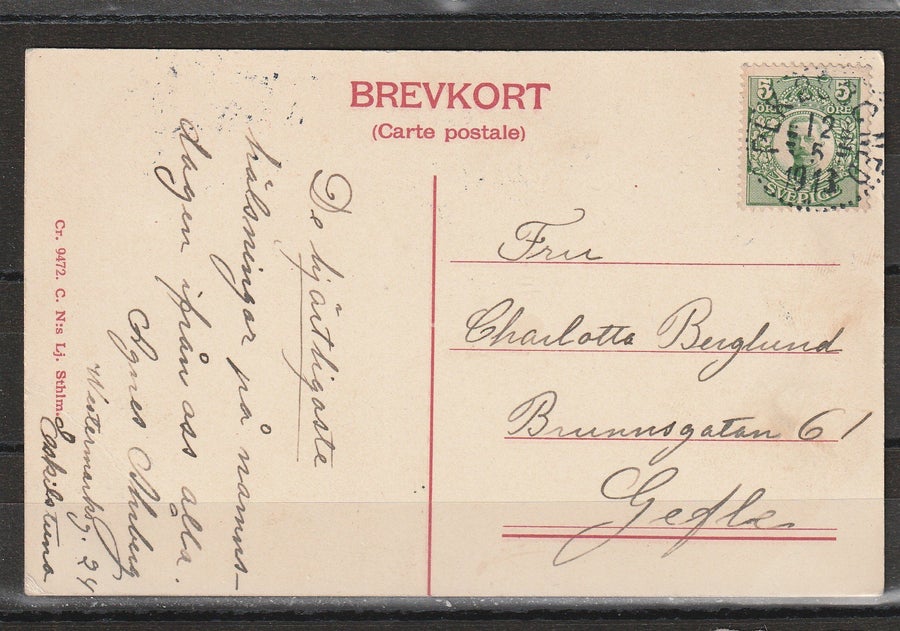 BREVKORT
(Carte postale)
De hjärtligaste
hälsningar på namns-
dagen ifrån oss alla.
Agnes
Westermarksg. 24
Eskilstuna
Cr. 9472. C. N:s Lj. Sthlm.
5 5
ÖRE ÖRE
SVERIGE
12
5
1913
Fru
Charlotta Berglund
Brunnsgatan 61
Gefle